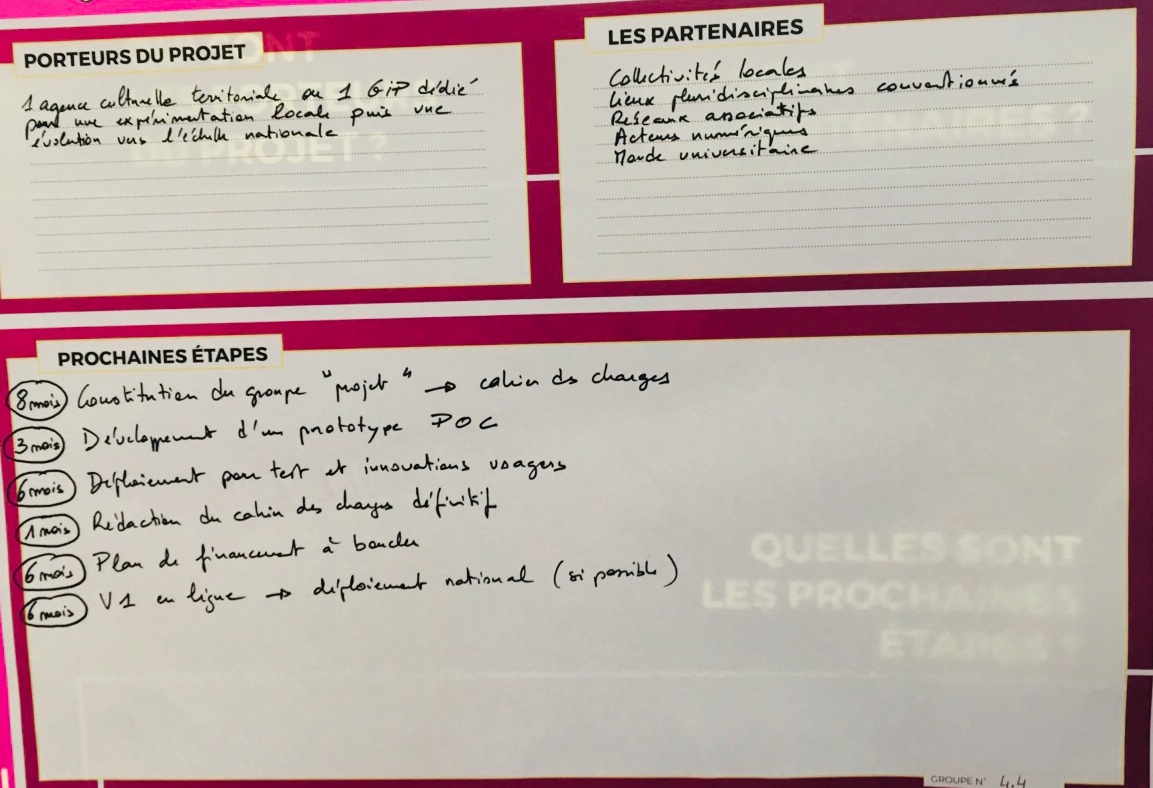 PORTEURS DU PROJET
1 agence culturelle territoriale ou 1 GIP dédié
pour une expérimentation locale puis une
évolution vers l'échelle nationale
LES PARTENAIRES
Collectivités locales
Lieux pluridisciplinaires conventionnés
Réseaux associatifs
Acteurs numériques
Monde universitaire
PROCHAINES ÉTAPES
8 mois Constitution du groupe "projet" → cahier des charges
3 mois Développement d'un prototype POC
6 mois Déploiement pour test et innovations usagers
1 mois Rédaction du cahier des charges définitif
6 mois Plan de financement à boucler
6 mois V1 en ligne → déploiement national (si possible)
QUELLES SONT
LES PROCHAINES
ÉTAPES ?
GROUPE N° 4.4